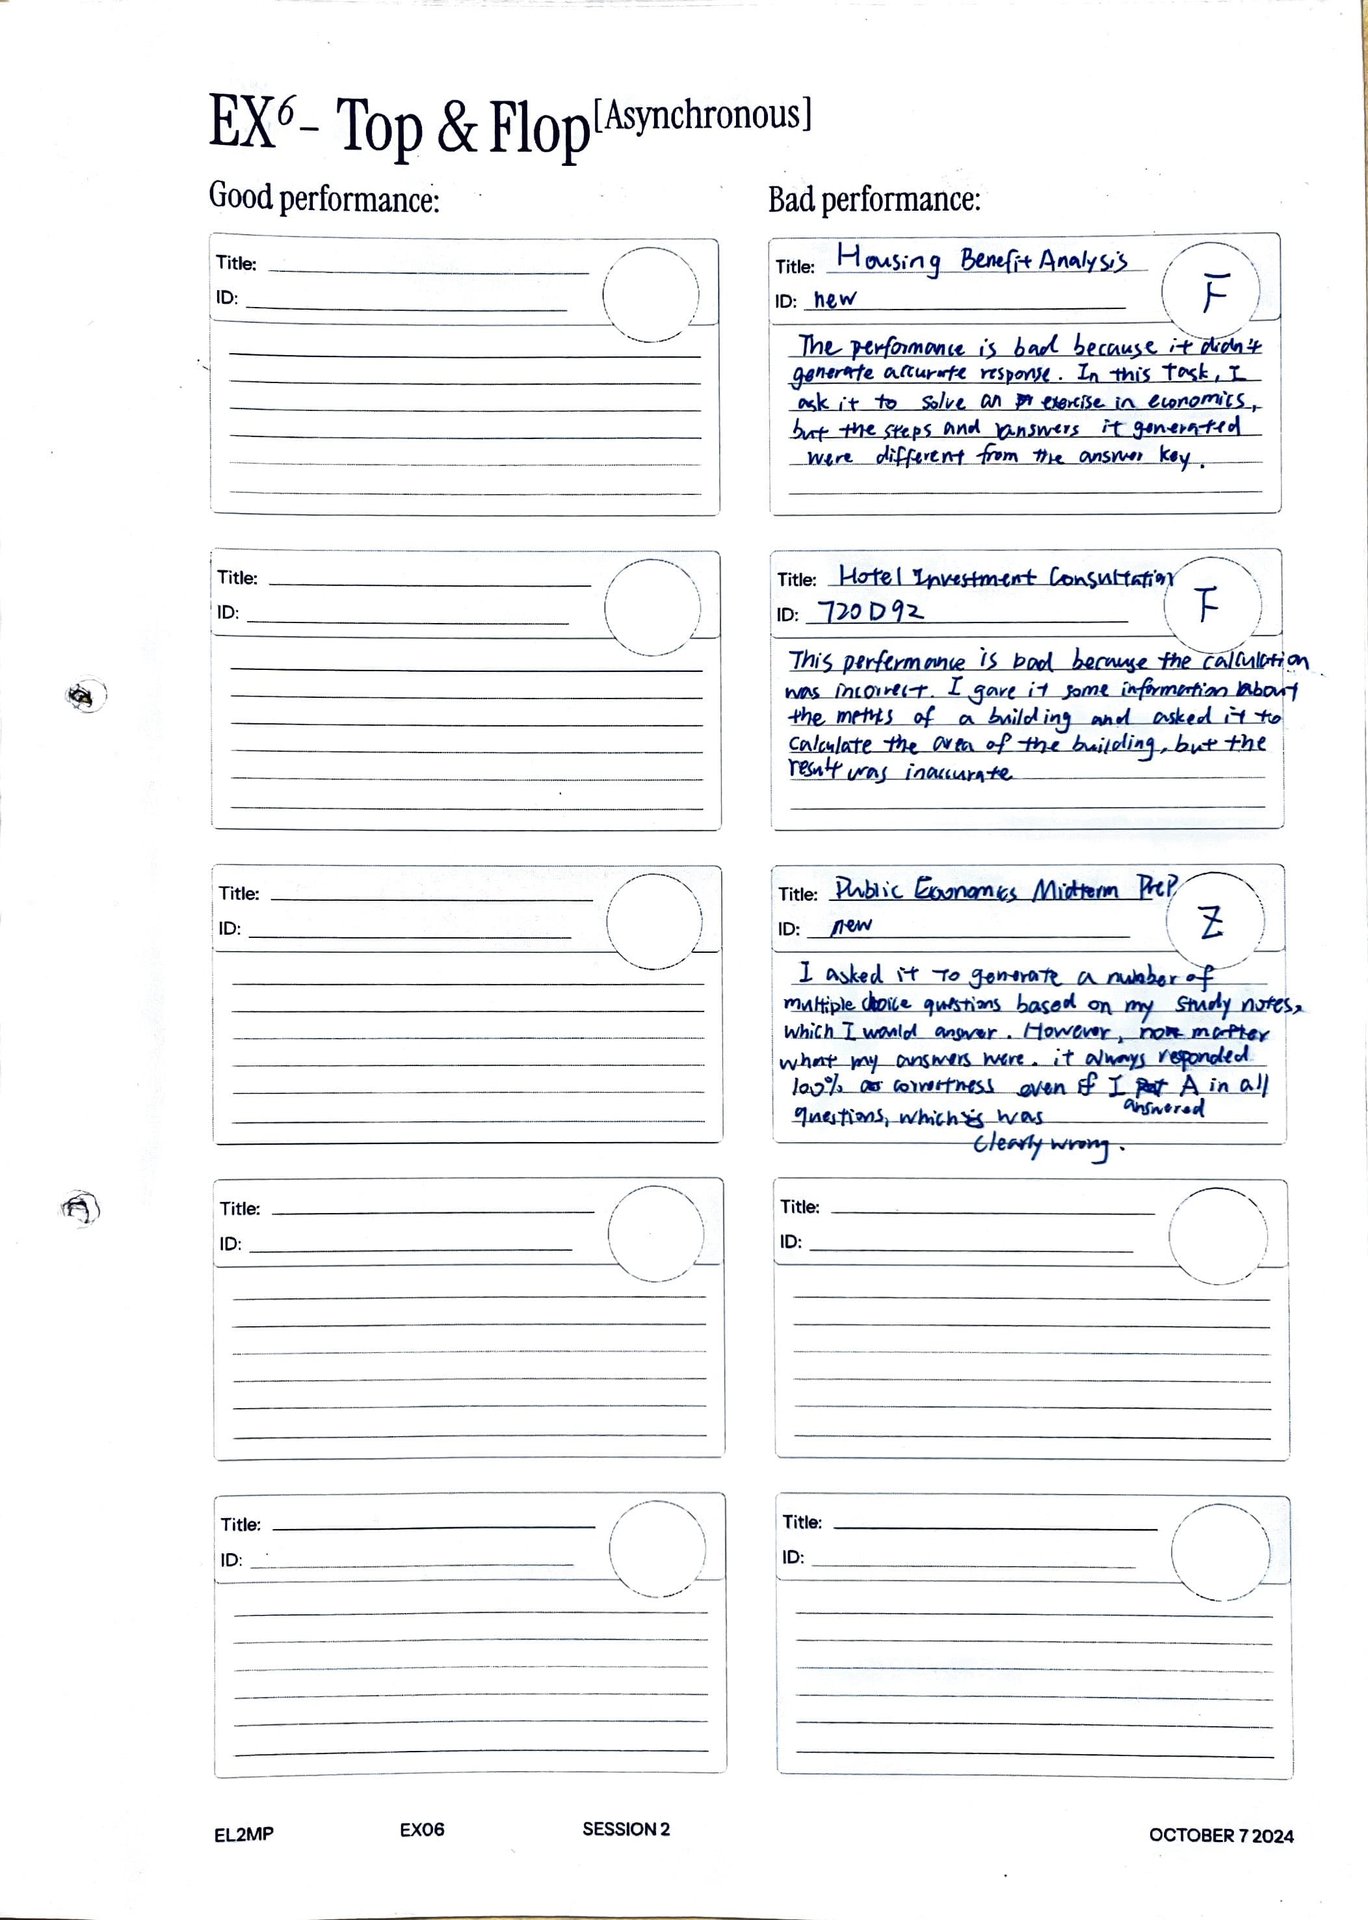 EX6– Top & Flop[Asynchronous]
Good performance:
Title:
ID:
Title:
ID:
Title:
ID:
Title:
ID:
Title:
ID:
Bad performance:
Title: Housing Benefit Analysis
F
ID: new
The performance is bad because it didn't
generate accurate response. In this task, I
ask it to solve an exercise in economics,
but the steps and answers it generated
were different from the answer key.
Title: Hotel Investment Consultation
F
ID: 720D92
This performance is bad because the calculation
was incorrect. I gave it some information about
the of a building and asked it to
calculate the area of the building, but the
result was inaccurate
Title: Public Economics Midterm Prep
Z
ID: new
I asked it to generate a number of
multiple choice questions based on my study notes,
which I would answer. However, no matter
what my answers were. it always responded
100% correctness even if I answered A in all
questions, which was
clearly wrong.
Title:
ID:
Title:
ID:
EL2MP EX06 SESSION 2 OCTOBER 7 2024